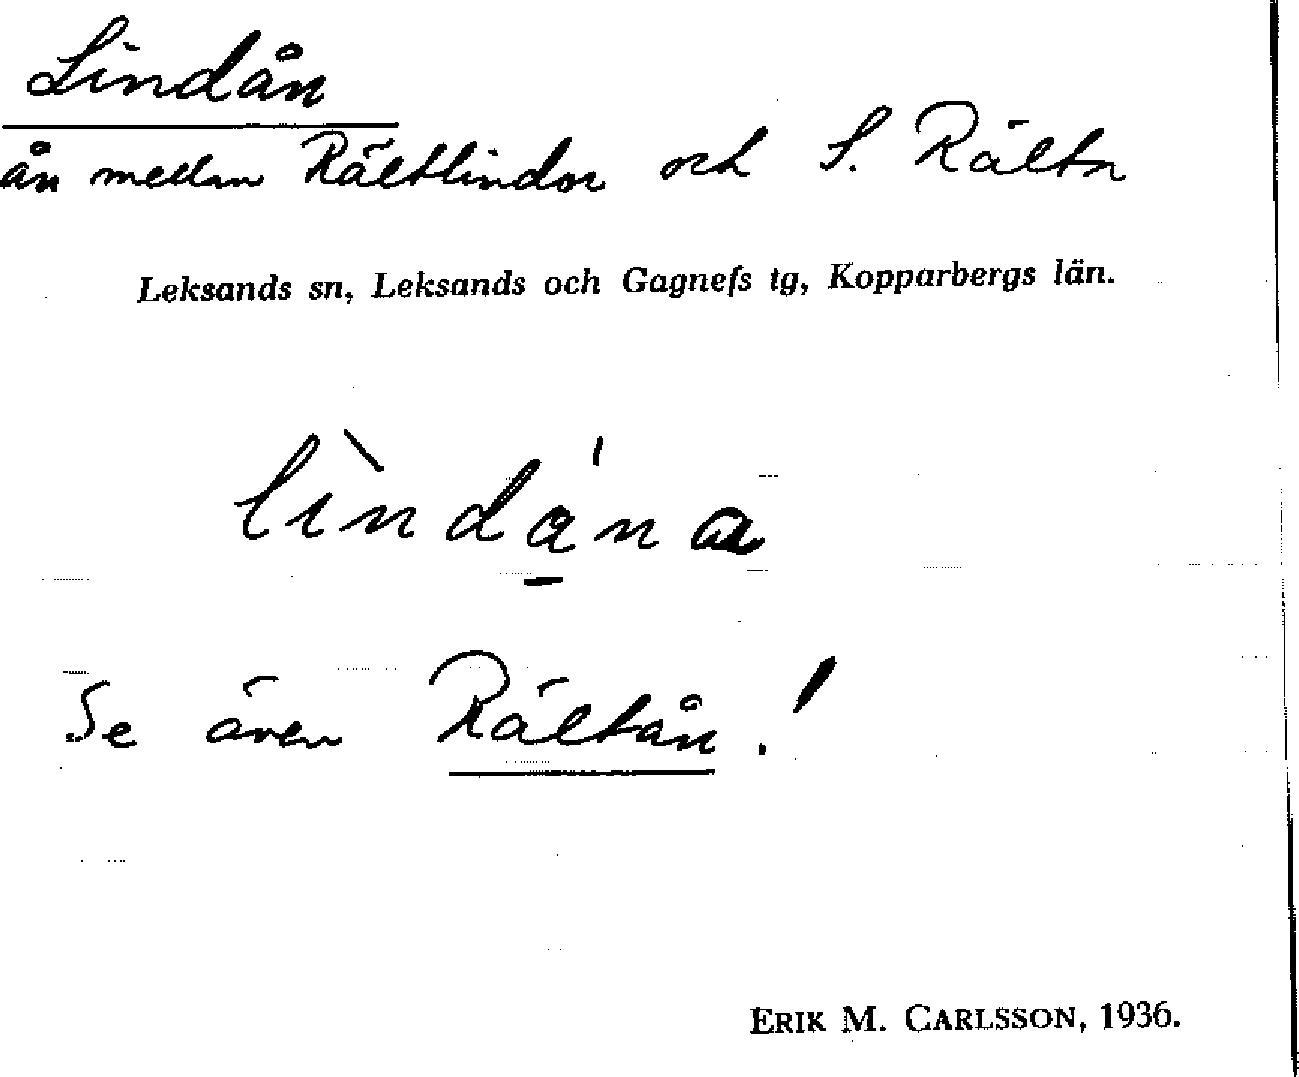 Lindån
ån mellan Rältlindor och S. Rälta
Leksands sn, Leksands och Gagnefs tg, Kopparbergs län.
lìndá̱na
Se även Rältån!
ERIK M. CARLSSON, 1936.